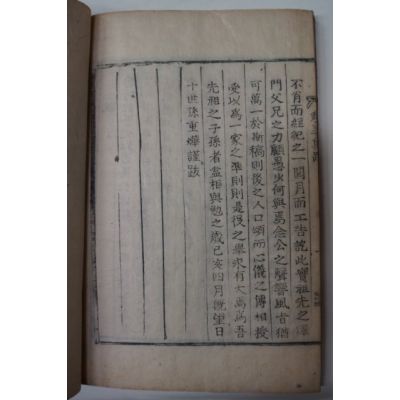 不肖而經紀之一閱月而工告訖此實祖先之
門父兄之力顧愚出何與焉念公之聲響風旨猶
可萬一於斯稿則後之人口頌而心儀之傳相授
受以爲一家之準則則是役之擧永有大焉爲吾
先祖之子孫者盍相與勉之歲己亥四月旣望日
十世孫重燁謹跋